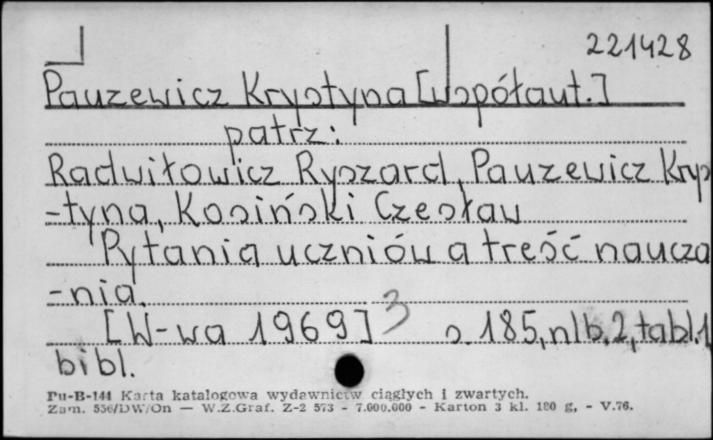 221428
Pauzewicz Krystyna [współaut.]
patrz:
Radwiłowicz Ryszard, Pauzewicz Krys
-tyna, Kosiński Czesław
Pytania uczniów a treść naucza
-nia.
[W-wa 1969] 3 s. 185, nlb. 2, tabl. 1
bibl.
Pu-B-144 Karta katalogowa wydawnictw ciągłych i zwartych.
Zam. 556/DW/On — W.Z.Graf. Z-2 573 - 7.000.000 - Karton 3 kl. 180 g, - V.76.